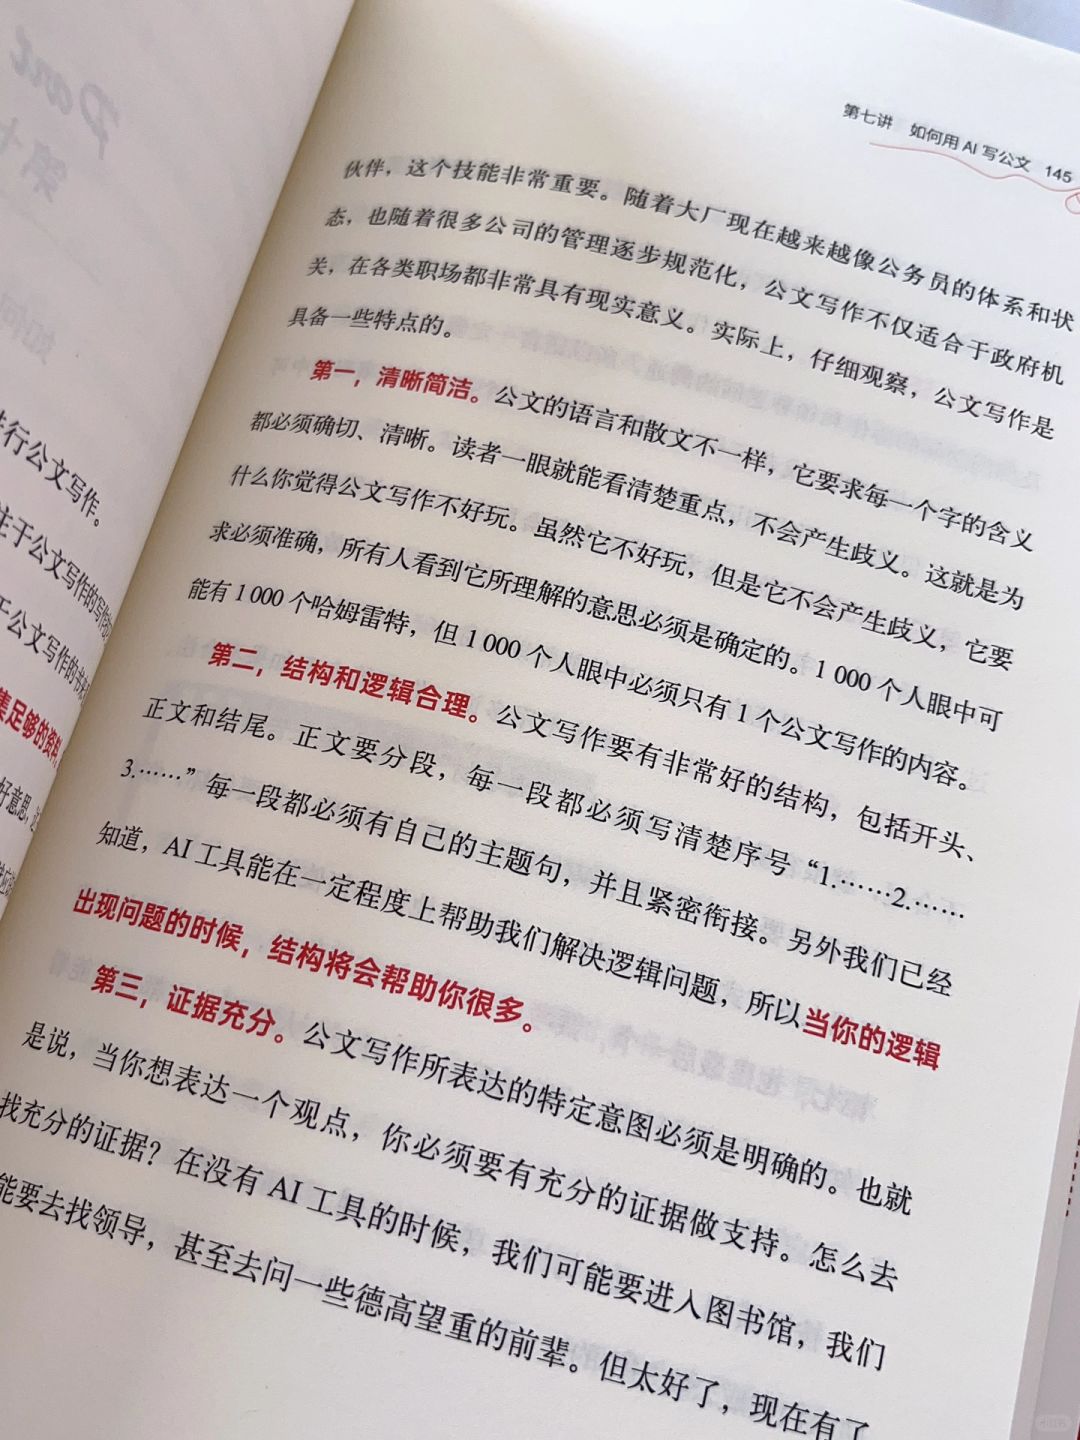 第七讲 如何用 AI 写公文 145
伙伴，这个技能非常重要。随着大厂现在越来越像公务员的体系和状
态，也随着很多公司的管理逐步规范化，公文写作不仅适合于政府机
关，在各类职场都非常具有现实意义。实际上，仔细观察，公文写作是
具备一些特点的。
第一，清晰简洁。公文的语言和散文不一样，它要求每一个字的含义
都必须确切、清晰。读者一眼就能看清楚重点，不会产生歧义。这就是为
什么你觉得公文写作不好玩。虽然它不好玩，但是它不会产生歧义，它要
求必须准确，所有人看到它所理解的意思必须是确定的。1 000 个人眼中可
能有 1 000 个哈姆雷特，但 1 000 个人眼中必须只有 1 个公文写作的内容。
第二，结构和逻辑合理。公文写作要有非常好的结构，包括开头、
正文和结尾。正文要分段，每一段都必须写清楚序号“1.……2.……
3.……”每一段都必须有自己的主题句，并且紧密衔接。另外我们已经
知道，AI 工具能在一定程度上帮助我们解决逻辑问题，所以当你的逻辑
出现问题的时候，结构将会帮助你很多。
第三，证据充分。公文写作所表达的特定意图必须是明确的。也就
是说，当你想表达一个观点，你必须要有充分的证据做支持。怎么去
找充分的证据？在没有 AI 工具的时候，我们可能要进入图书馆，我们
能要去找领导，甚至去问一些德高望重的前辈。但太好了，现在有了
进行公文写作。
注于公文写作的写作
于公文写作的书
集足够的资料
好意思，